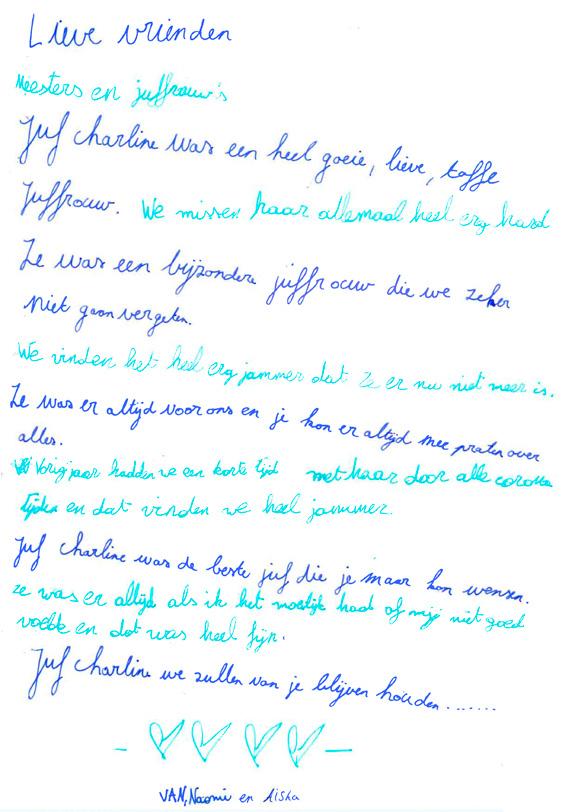 Lieve vrienden
Meesters en juffrouw's
Juf Charline was een heel goeie, lieve, toffe
Juffrouw. We missen haar allemaal heel erg hard
Ze was een bijzondere juffrouw die we zeker
niet gaan vergeten.
We vinden het heel erg jammer dat ze er nu niet meer is.
Ze was er altijd voor ons en je kon er altijd mee praten over
alles.
Vorig jaar hadden we een korte tijd met haar door alle corona
tijden en dat vinden we heel jammer.
Juf Charline was de beste juf die je maar kon wensen.
ze was er altijd als ik het moeilijk had of mij niet goed
voelde en dat was heel fijn.
Juf Charline we zullen van je blijven houden.......
VAN, Naomi en Aisha